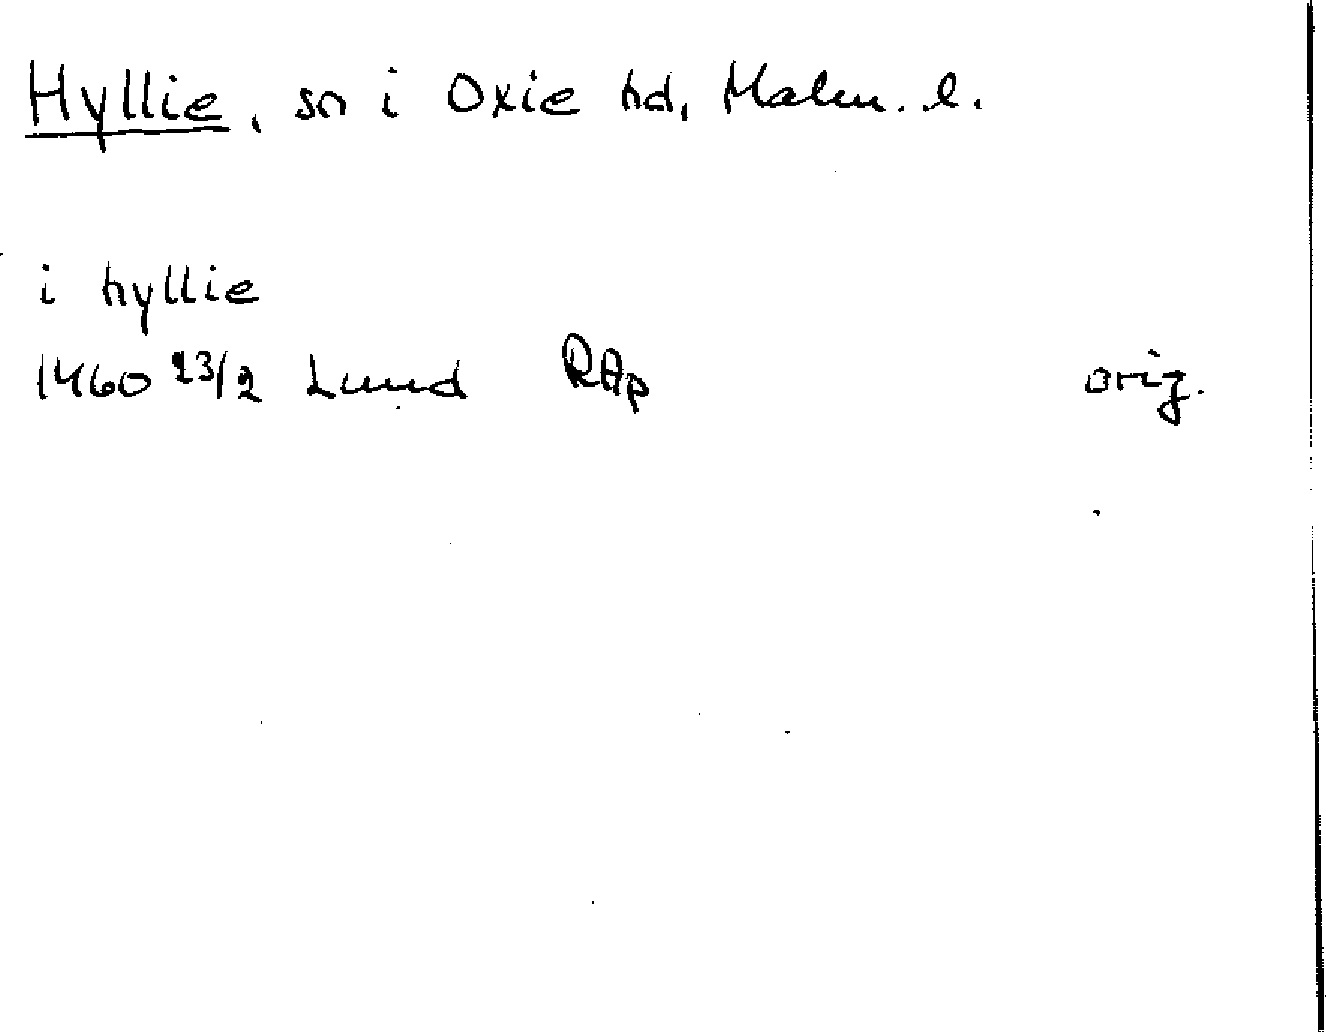 Hyllie, sn i Oxie hd, Malm. l.
i hyllie
1460 23/2 Lund RAp orig.